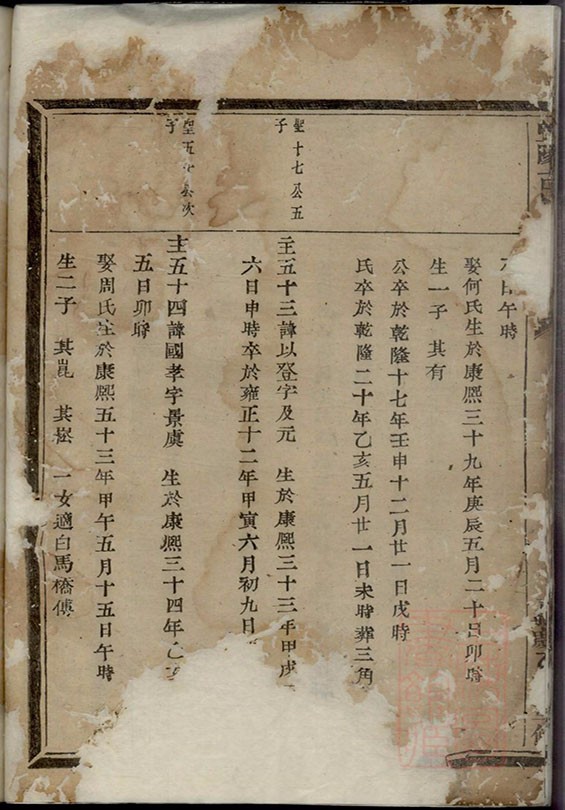 日午時
娶何氏生於康熙三十九年庚辰五月二十日卯時
生一子 其有
公卒於乾隆十七年壬申十二月廿一日戌時
氏卒於乾隆二十年乙亥五月廿一日未時葬三角
聖十七公五
子
主五十三諱以登字及元 生於康熙三十三年甲戌
六日申時卒於雍正十二年甲寅六月初九日
聖五十公次
子
主五十四諱國孝字景虞 生於康熙三十四年乙亥
五日卯時
娶周氏生於康熙五十三年甲午五月十五日午時
生二子 其崑 其崧 一女適白馬橋傅